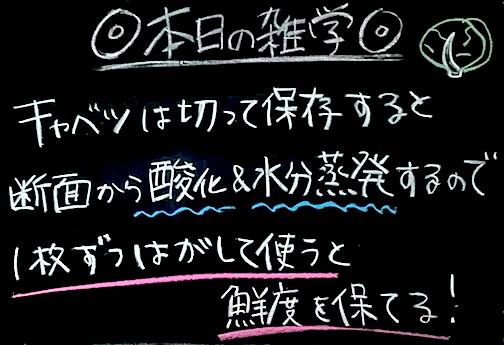 ◎本日の雑学◎
キャベツは切って保存すると
断面から酸化&水分蒸発するので
1枚ずつはがして使うと
鮮度を保てる!